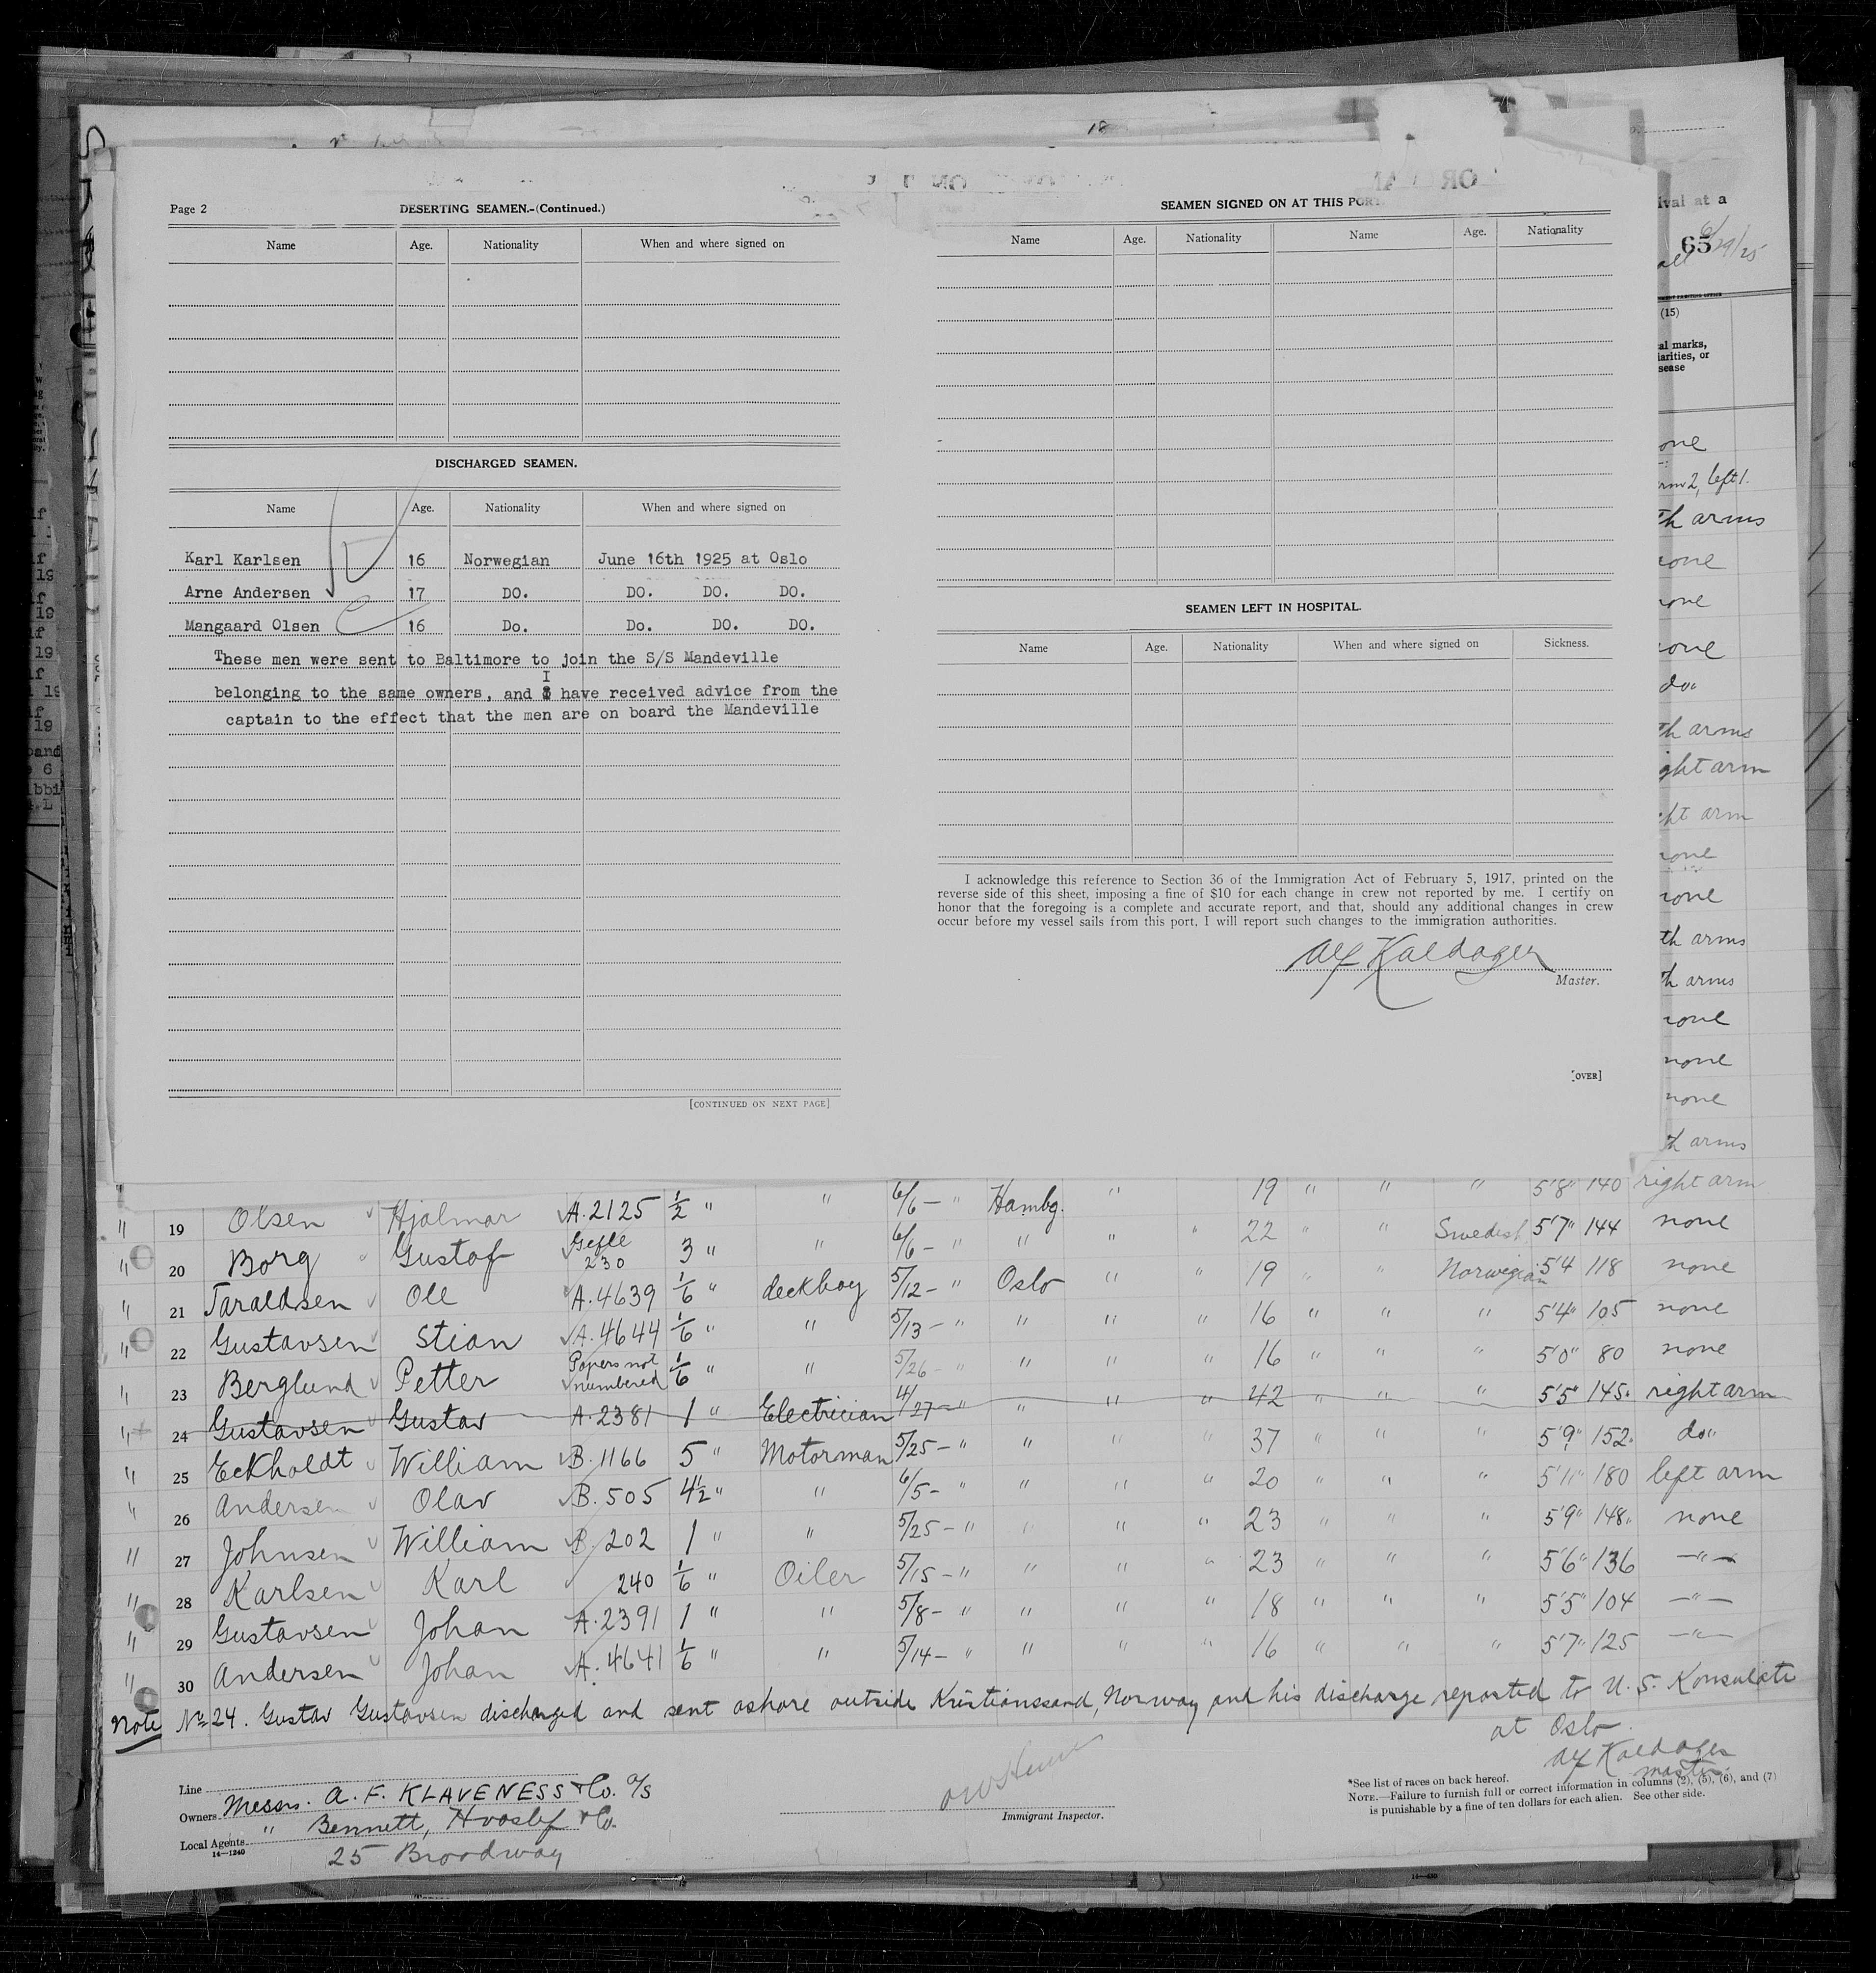 Page 2
DESERTING SEAMEN.-(Continued.)
Name Age. Nationality When and where signed on
DISCHARGED SEAMEN.
Name Age. Nationality When and where signed on
Karl Karlsen 16 Norwegian June 16th 1925 at Oslo
Arne Andersen 17 DO. DO. DO. DO.
Mangaard Olsen 16 Do. Do. DO. DO.
These men were sent to Baltimore to join the S/S Mandeville
belonging to the same owners, and I have received advice from the
captain to the effect that the men are on board the Mandeville
[CONTINUED ON NEXT PAGE]
SEAMEN SIGNED ON AT THIS PORT.
Name Age. Nationality Name Age. Nationality
SEAMEN LEFT IN HOSPITAL.
Name Age. Nationality When and where signed on Sickness.
I acknowledge this reference to Section 36 of the Immigration Act of February 5, 1917, printed on the
reverse side of this sheet, imposing a fine of $10 for each change in crew not reported by me. I certify on
honor that the foregoing is a complete and accurate report, and that, should any additional changes in crew
occur before my vessel sails from this port, I will report such changes to the immigration authorities.
Alf Kaldager
Master.
[OVER]
ival at a
65
6/29/25
(15)
al marks,
iarities, or
sease
one
rm 2, left 1.
th arms
none
none
none
do"
th arms
ght arm
ght arm
none
none
th arms
th arms
none
none
none
th arms
" 19 Olsen Hjalmar A.2125 1/2 " " 6/6 - " Hambg. " 19 " " " 5'8" 140 right arm
" 20 Borg Gustaf Gefle 230 3 " " 6/6 - " " " 22 " " Swedish 5'7" 144 none
" 21 Taraldsen Ole A.4639 1/6 " deckboy 5/12 - " Oslo " " 19 " " Norwegian 5'4 118 none
" 22 Gustavsen Stian A.4644 1/6 " " 5/13 - " " " " 16 " " " 5'4" 105 none
" 23 Berglund Petter Papers not numbered 1/6 " " 5/26 - " " " " 16 " " " 5'0" 80 none
" 24 Gustavsen Gustav A.2381 1 " Electrician 4/27 - " " " " 42 " " " 5'5" 145. right arm
" 25 Eckholdt William B.1166 5 " Motorman 5/25 - " " " " 37 " " " 5'9" 152. do"
" 26 Andersen Olav B.505 4½ " " 6/5 - " " " " 20 " " " 5'11" 180 left arm
" 27 Johnsen William B.202 1 " " 5/25 - " " " " 23 " " " 5'9" 148. none
" 28 Karlsen Karl 240 1/6 " Oiler 5/15 - " " " " 23 " " " 5'6" 136 -"-
" 29 Gustavsen Johan A.2391 1 " " 5/8 - " " " " 18 " " " 5'5" 104 -"-
" 30 Andersen Johan A.4641 1/6 " " 5/14 - " " " " 16 " " " 5'7" 125 -"-
Note No 24. Gustav Gustavsen discharged and sent ashore outside Kristianssand, Norway and his discharge reported to U.S. Konsulate
at Oslo.
Alf Kaldager
master.
Line
Owners Messrs. A. F. KLAVENESS & Co. A/S
Local Agents " Bennett, Hvoslef & Co.
14-1240
25 Broadway
Immigrant Inspector.
*See list of races on back hereof.
NOTE.—Failure to furnish full or correct information in columns (2), (5), (6), and (7)
is punishable by a fine of ten dollars for each alien. See other side.